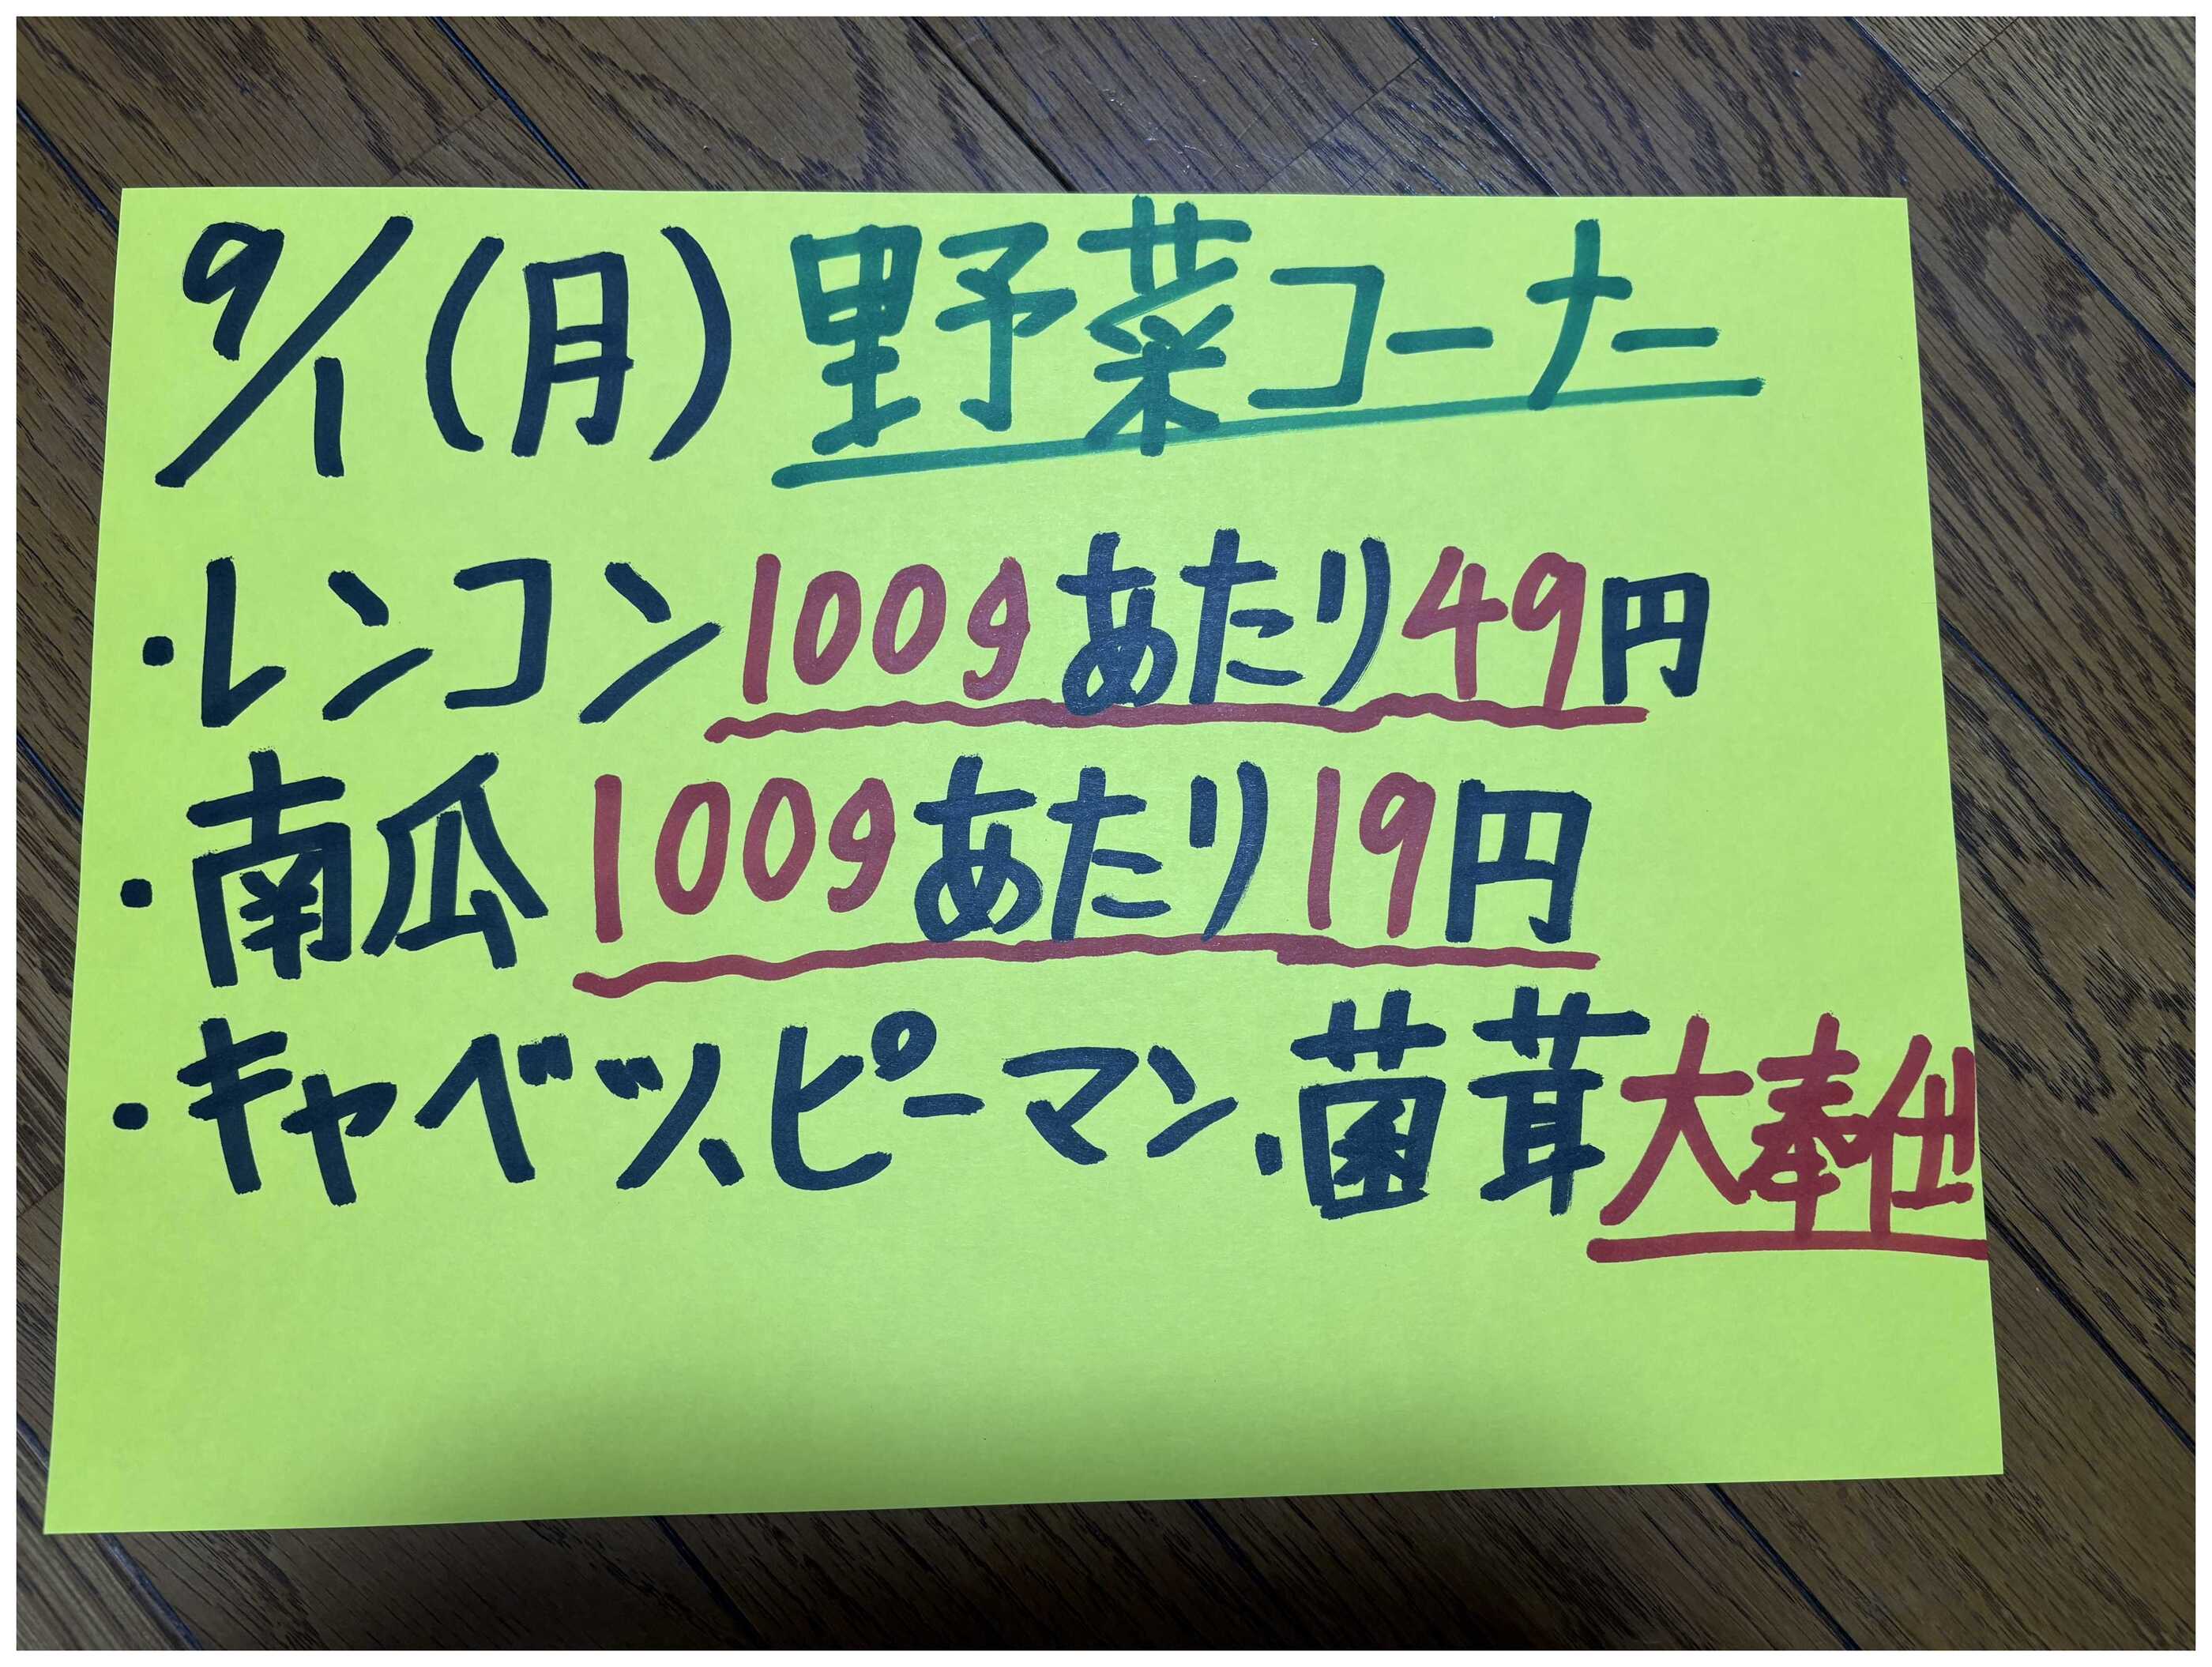 9/1(月) 野菜コーナー
・レンコン100gあたり49円
・南瓜 100gあたり19円
・キャベツ、ピーマン、菌茸大奉仕